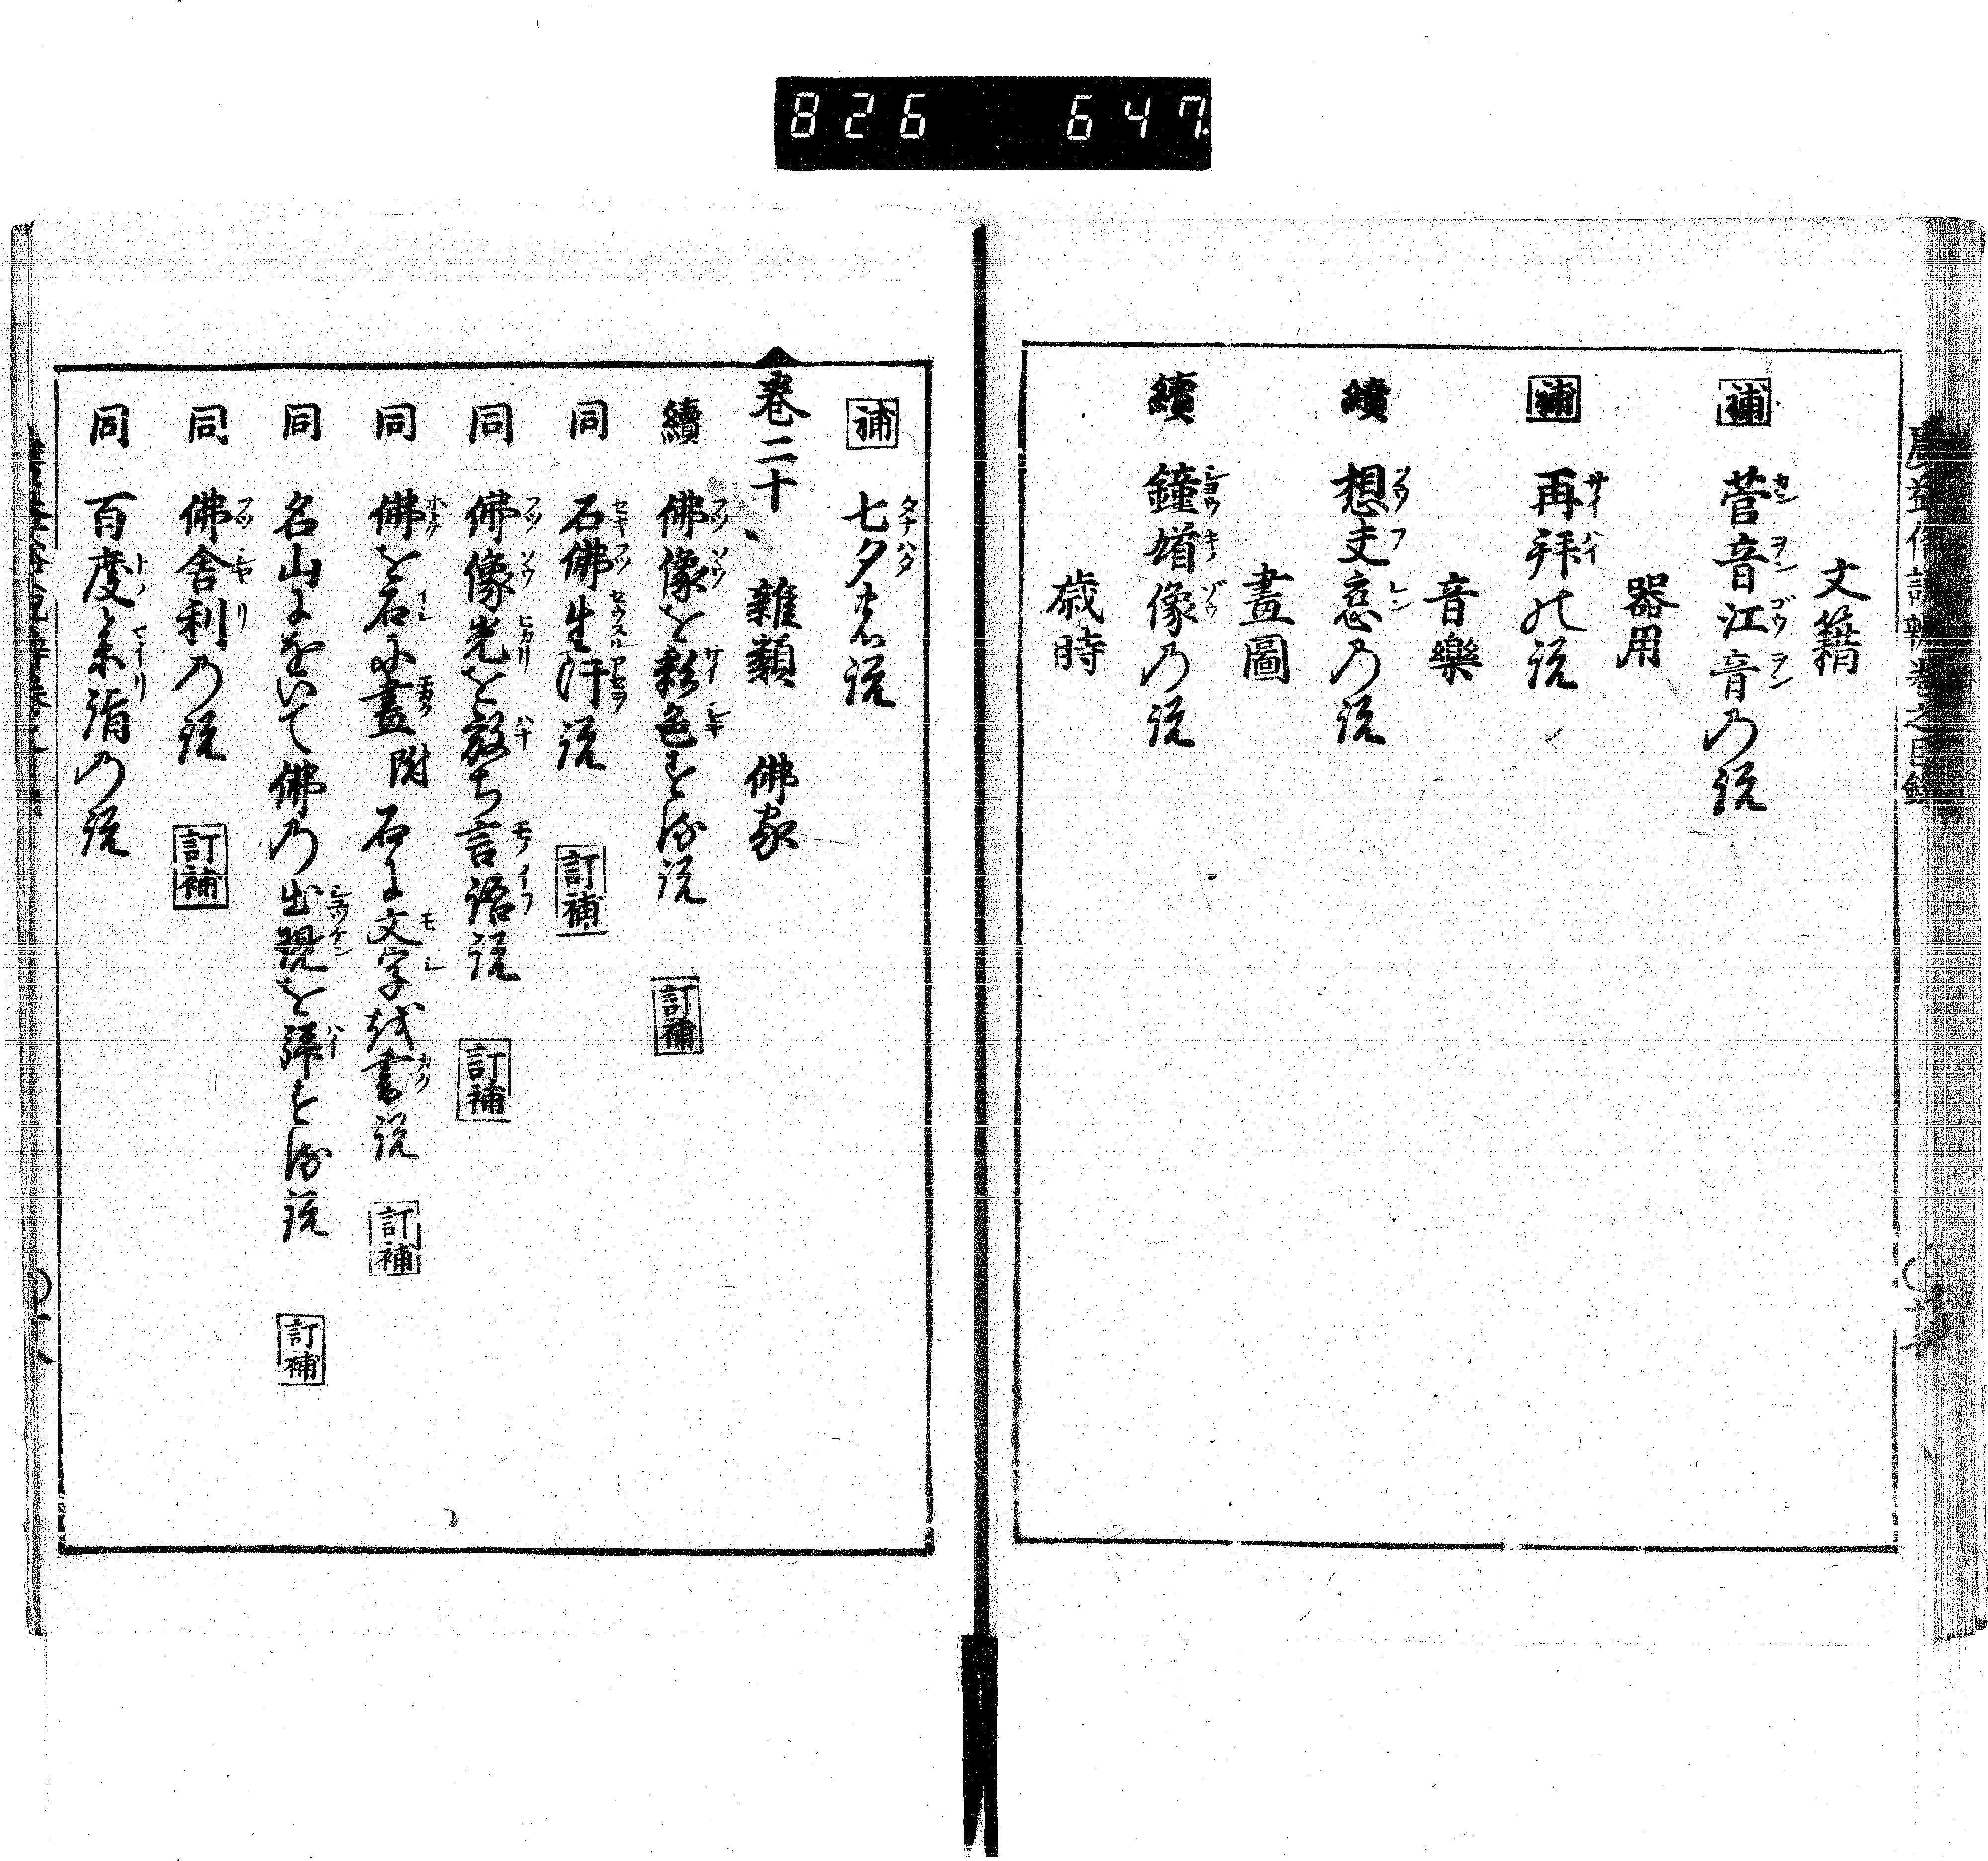 826 647
文籍
補 菅音江音の説
器用
補 再拜の説
音樂
續 想夫恋の説
畫圖
續 鐘馗像の説
歳時
補 七夕の説
巻二十 雜類 佛家
續 佛像を彩色する説 訂補
同 石佛生汗説 訂補
同 佛像光を放ち言語説 訂補
同 佛を石に畫附石に文字を書説 訂補
同 名山にをいて佛の出現を拜する説 訂補
同 佛舎利の説 訂補
同 百度参詣の説